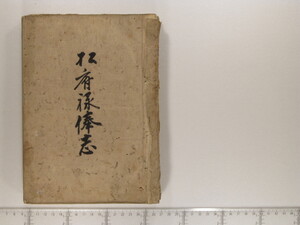 松府禄俸志